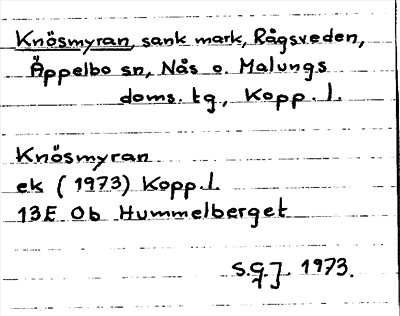 Knösmyran, sank mark, Rågsveden,
Äppelbo sn, Nås o. Malungs
doms. tg, Kopp. l.
Knösmyran
ek (1973) Kopp. l.
13E 0b Hummelberget
S.G.J. 1973.